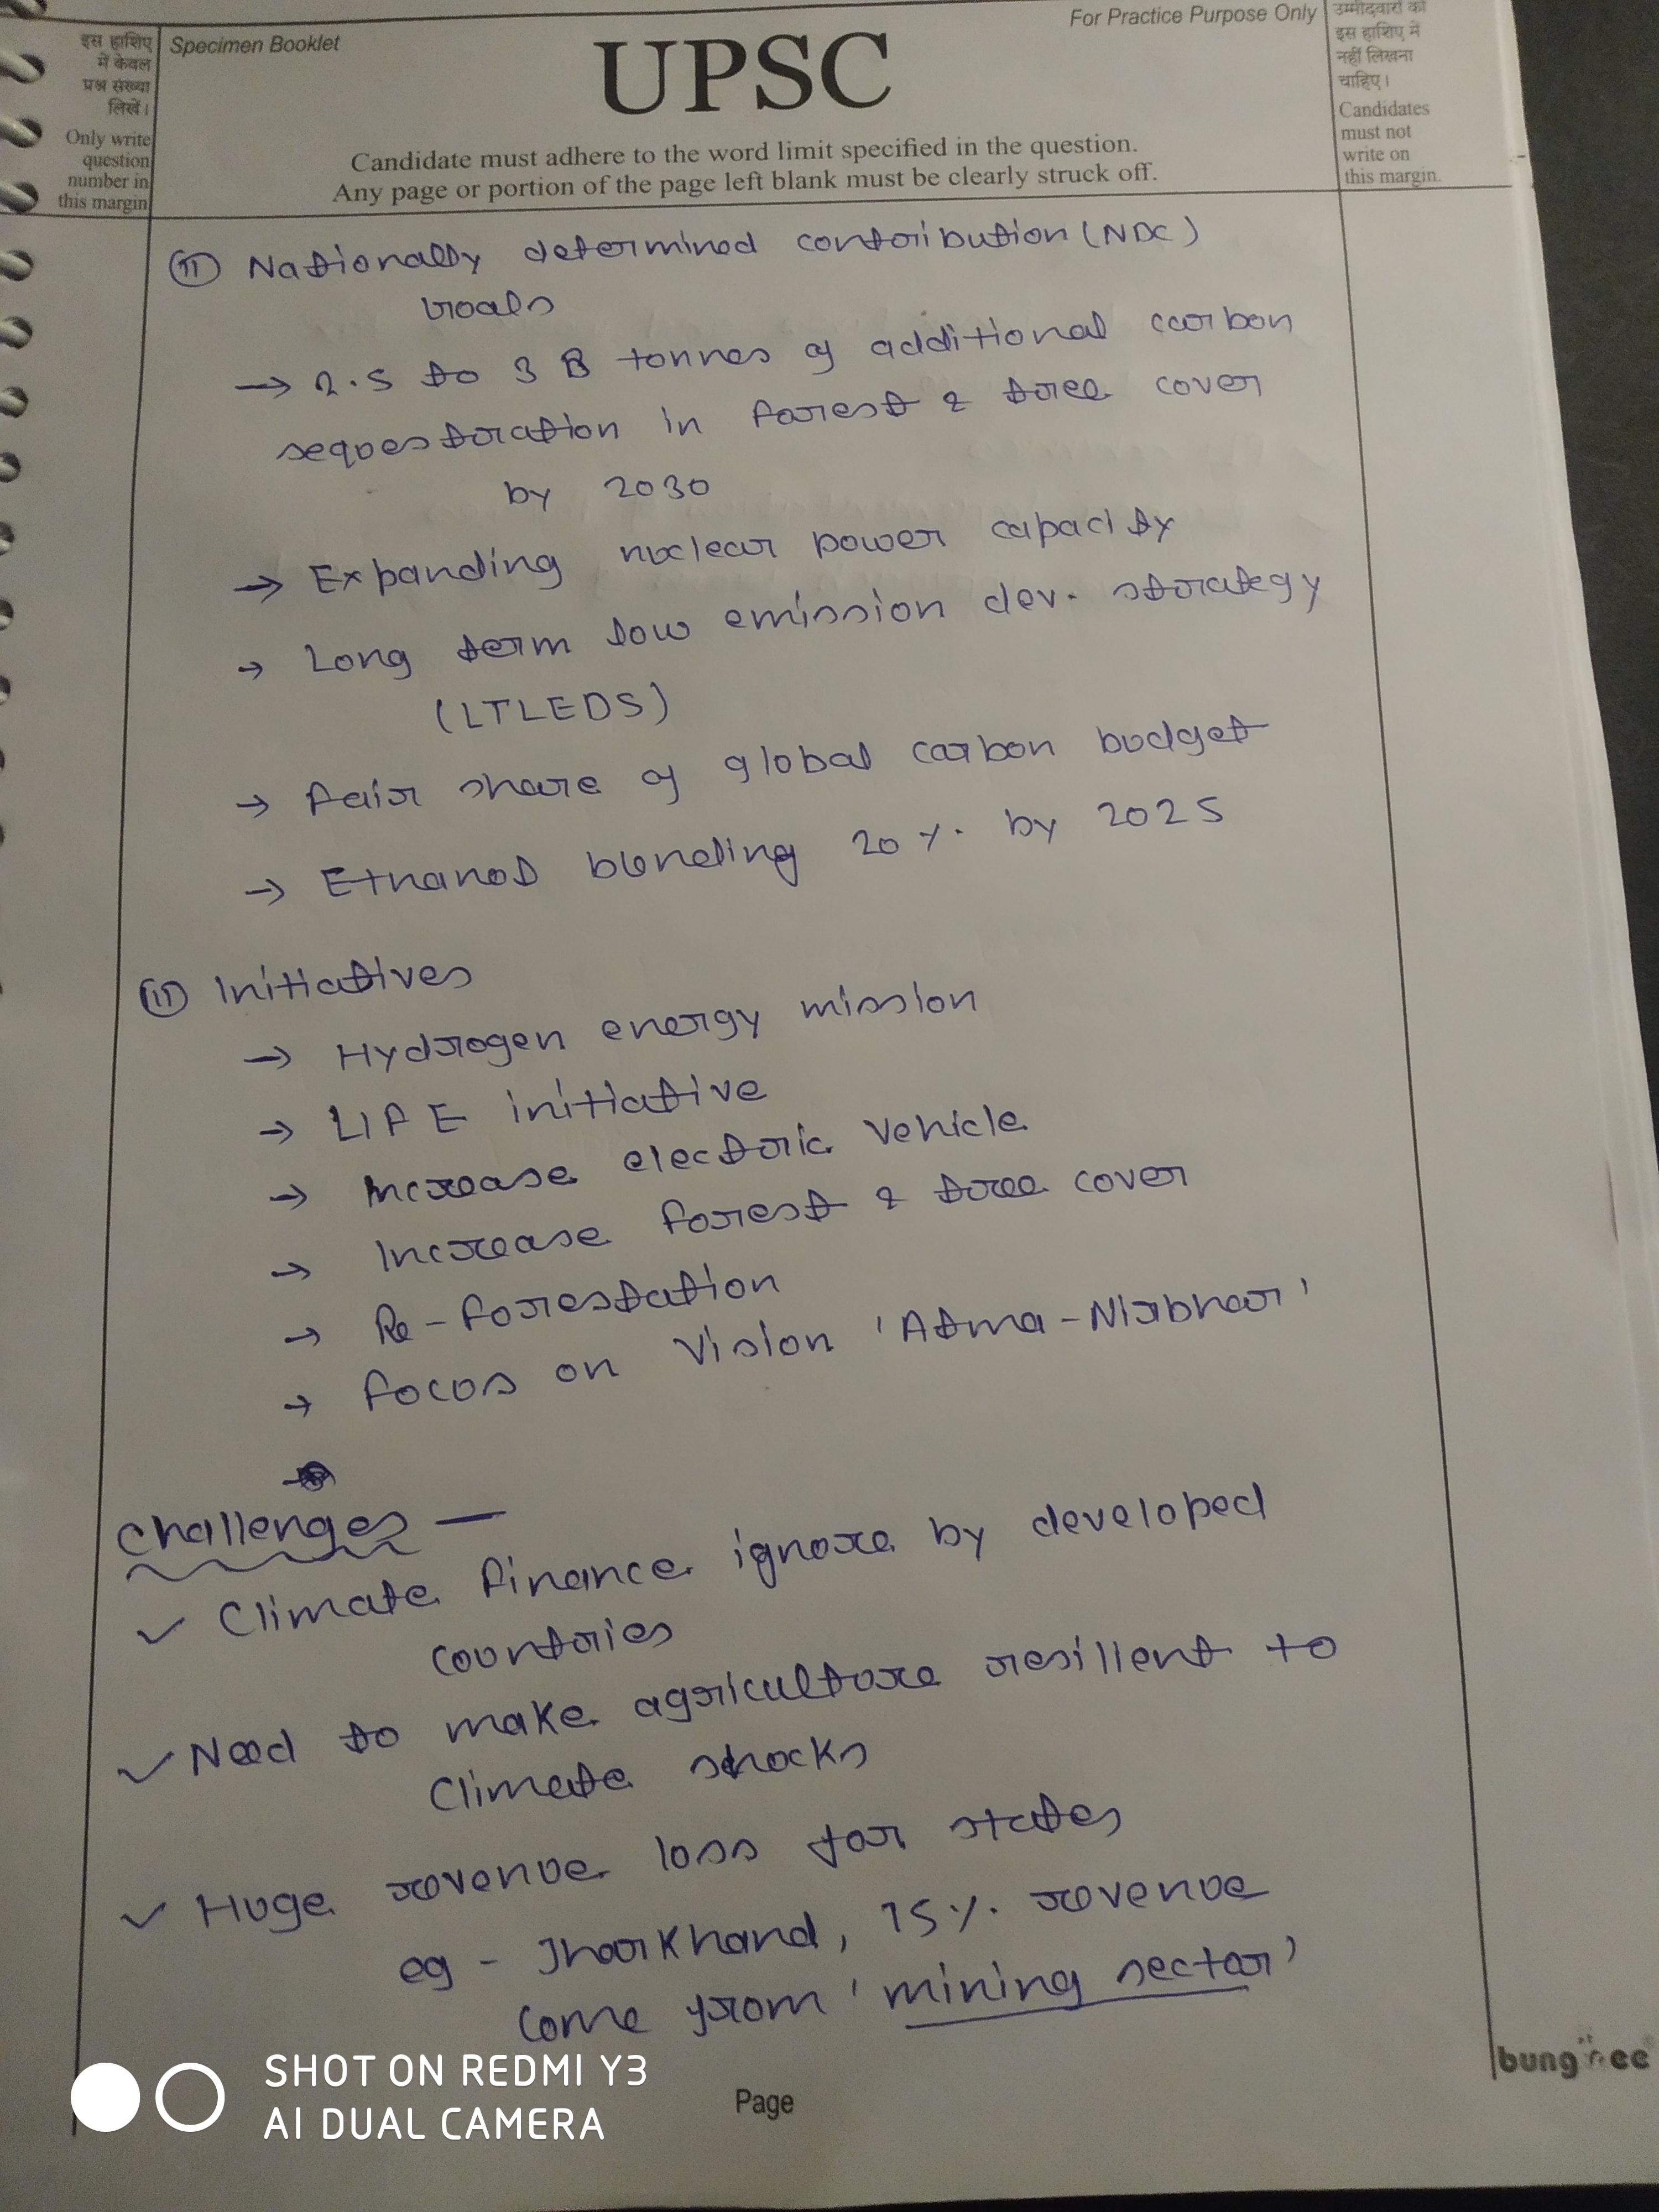 इस हाशिए
में केवल
प्रश्न संख्या
लिखें।
Only write
question
number in
this margin
Specimen Booklet
For Practice Purpose Only
UPSC
Candidate must adhere to the word limit specified in the question.
Any page or portion of the page left blank must be clearly struck off.
उम्मीदवारों को
इस हाशिए में
नहीं लिखना
चाहिए।
Candidates
must not
write on
this margin.
(ii) Nationally determined contribution (NDC)
Goals
→ 2.5 to 3 B tonnes of additional carbon
sequestration in forest & tree cover
by 2030
→ Expanding nuclear power capacity
→ Long term low emission dev. strategy
(LTLEDS)
→ Fair share of global carbon budget
→ Ethanol blending 20%. by 2025
(ii) Initiatives
→ Hydrogen energy mission
→ LIFE initiative
→ Increase electric vehicle
→ Increase forest & tree cover
→ Re-forestation
→ Focus on Vision 'Atma-Nirbhar'
Challenges —
✓ Climate finance ignore by developed
countries
✓ Need to make agriculture resilient to
climate shocks
✓ Huge revenue loss for states
eg - Jharkhand, 75%. revenue
come from 'mining sector'
SHOT ON REDMI Y3
AI DUAL CAMERA
Page